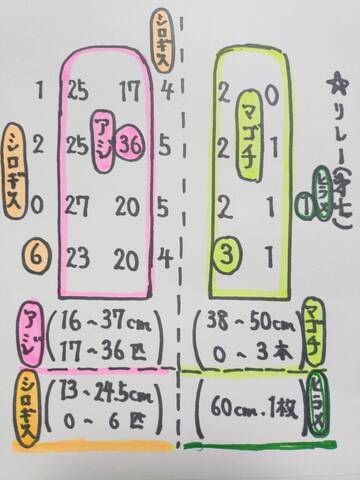 ☆リレー(才七)
シロギス
1 25 17 4
シロギス
2 25 アジ 36 5
0 27 20 5
6 23 20 4
2 0
マゴチ
2 1
2 1 1 ヒラメ
3 1
アジ (16～37cm
17～36匹)
(38～50cm
0～3本) マゴチ
シロギス (13～24.5cm
0～6匹)
(60cm.1枚) ヒラメ